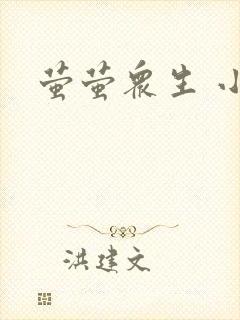 萤萤众生 小
洪建文